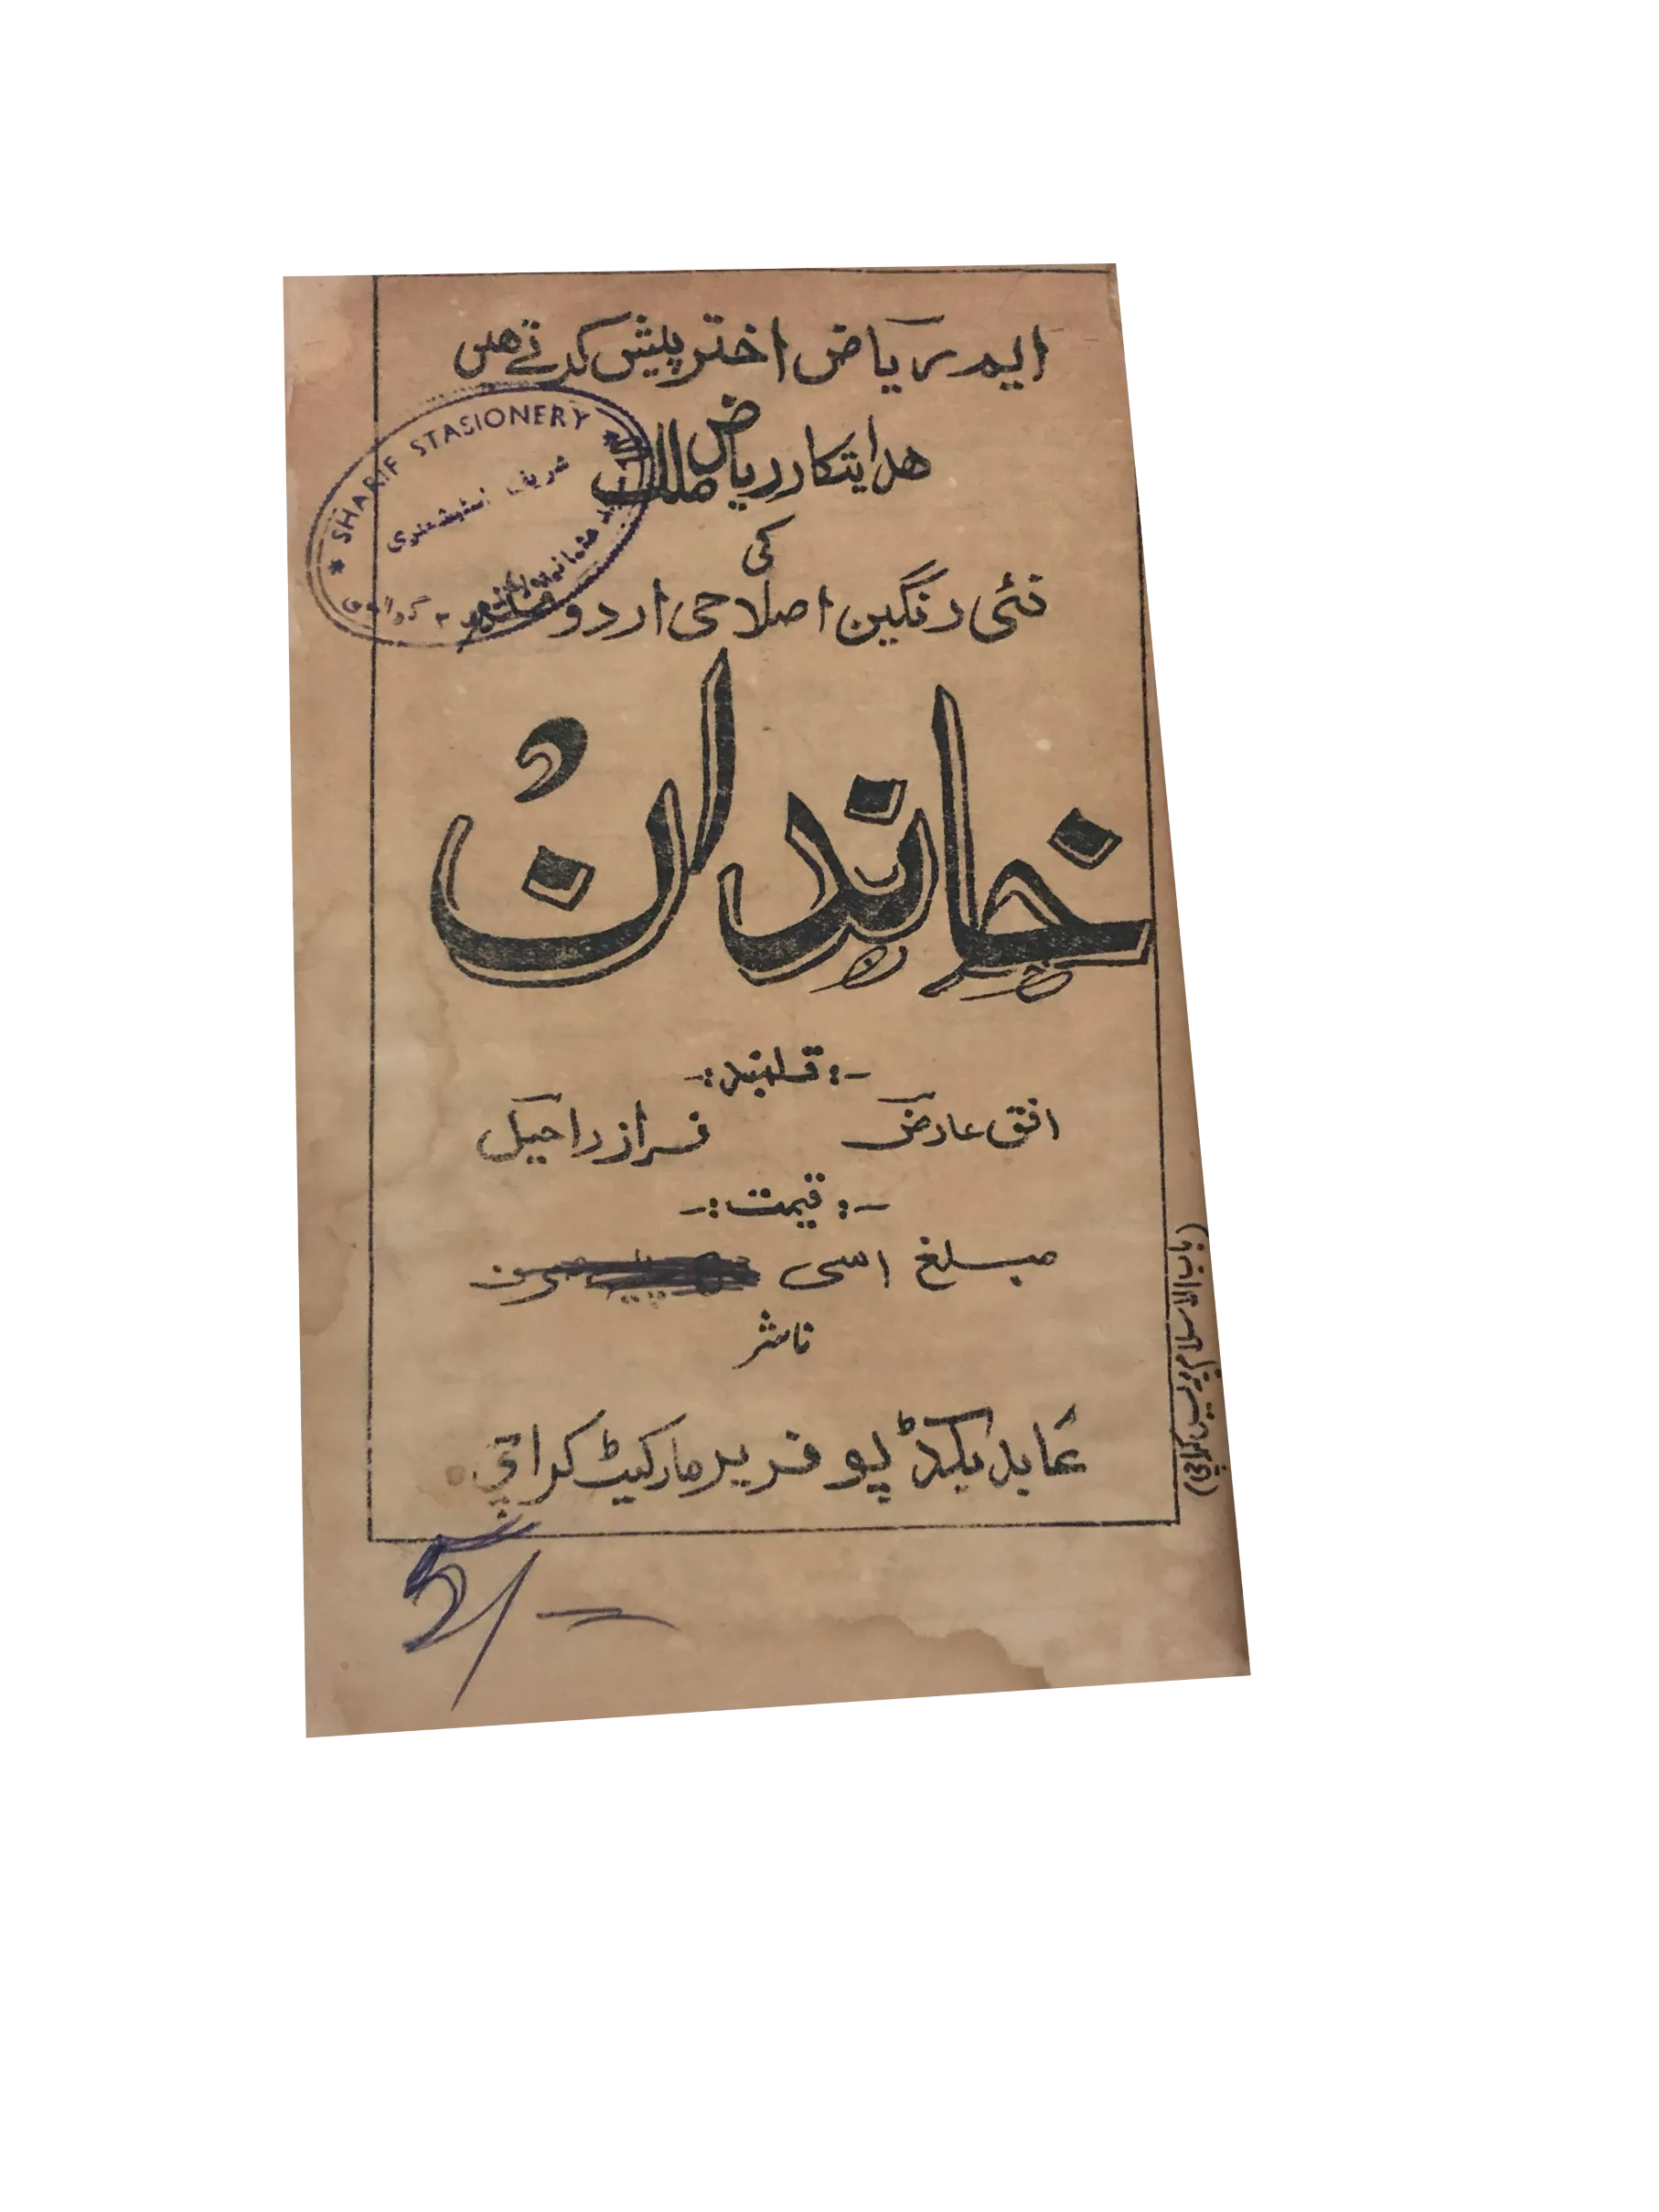 ایم ریاض اختر پیش کرتے ھیں
ھدایتکار ریاض ملک
کی
نئی رنگین اصلاحی اردو
SHARIF STASIONERY
شریف اسٹیشنری
خاندان
-: قلمبند :-
افق عارض فراز راحیل
-: قیمت :-
مبلغ اسی
ناشر
عابد بکڈپو فریر مارکیٹ کراچی
5/-